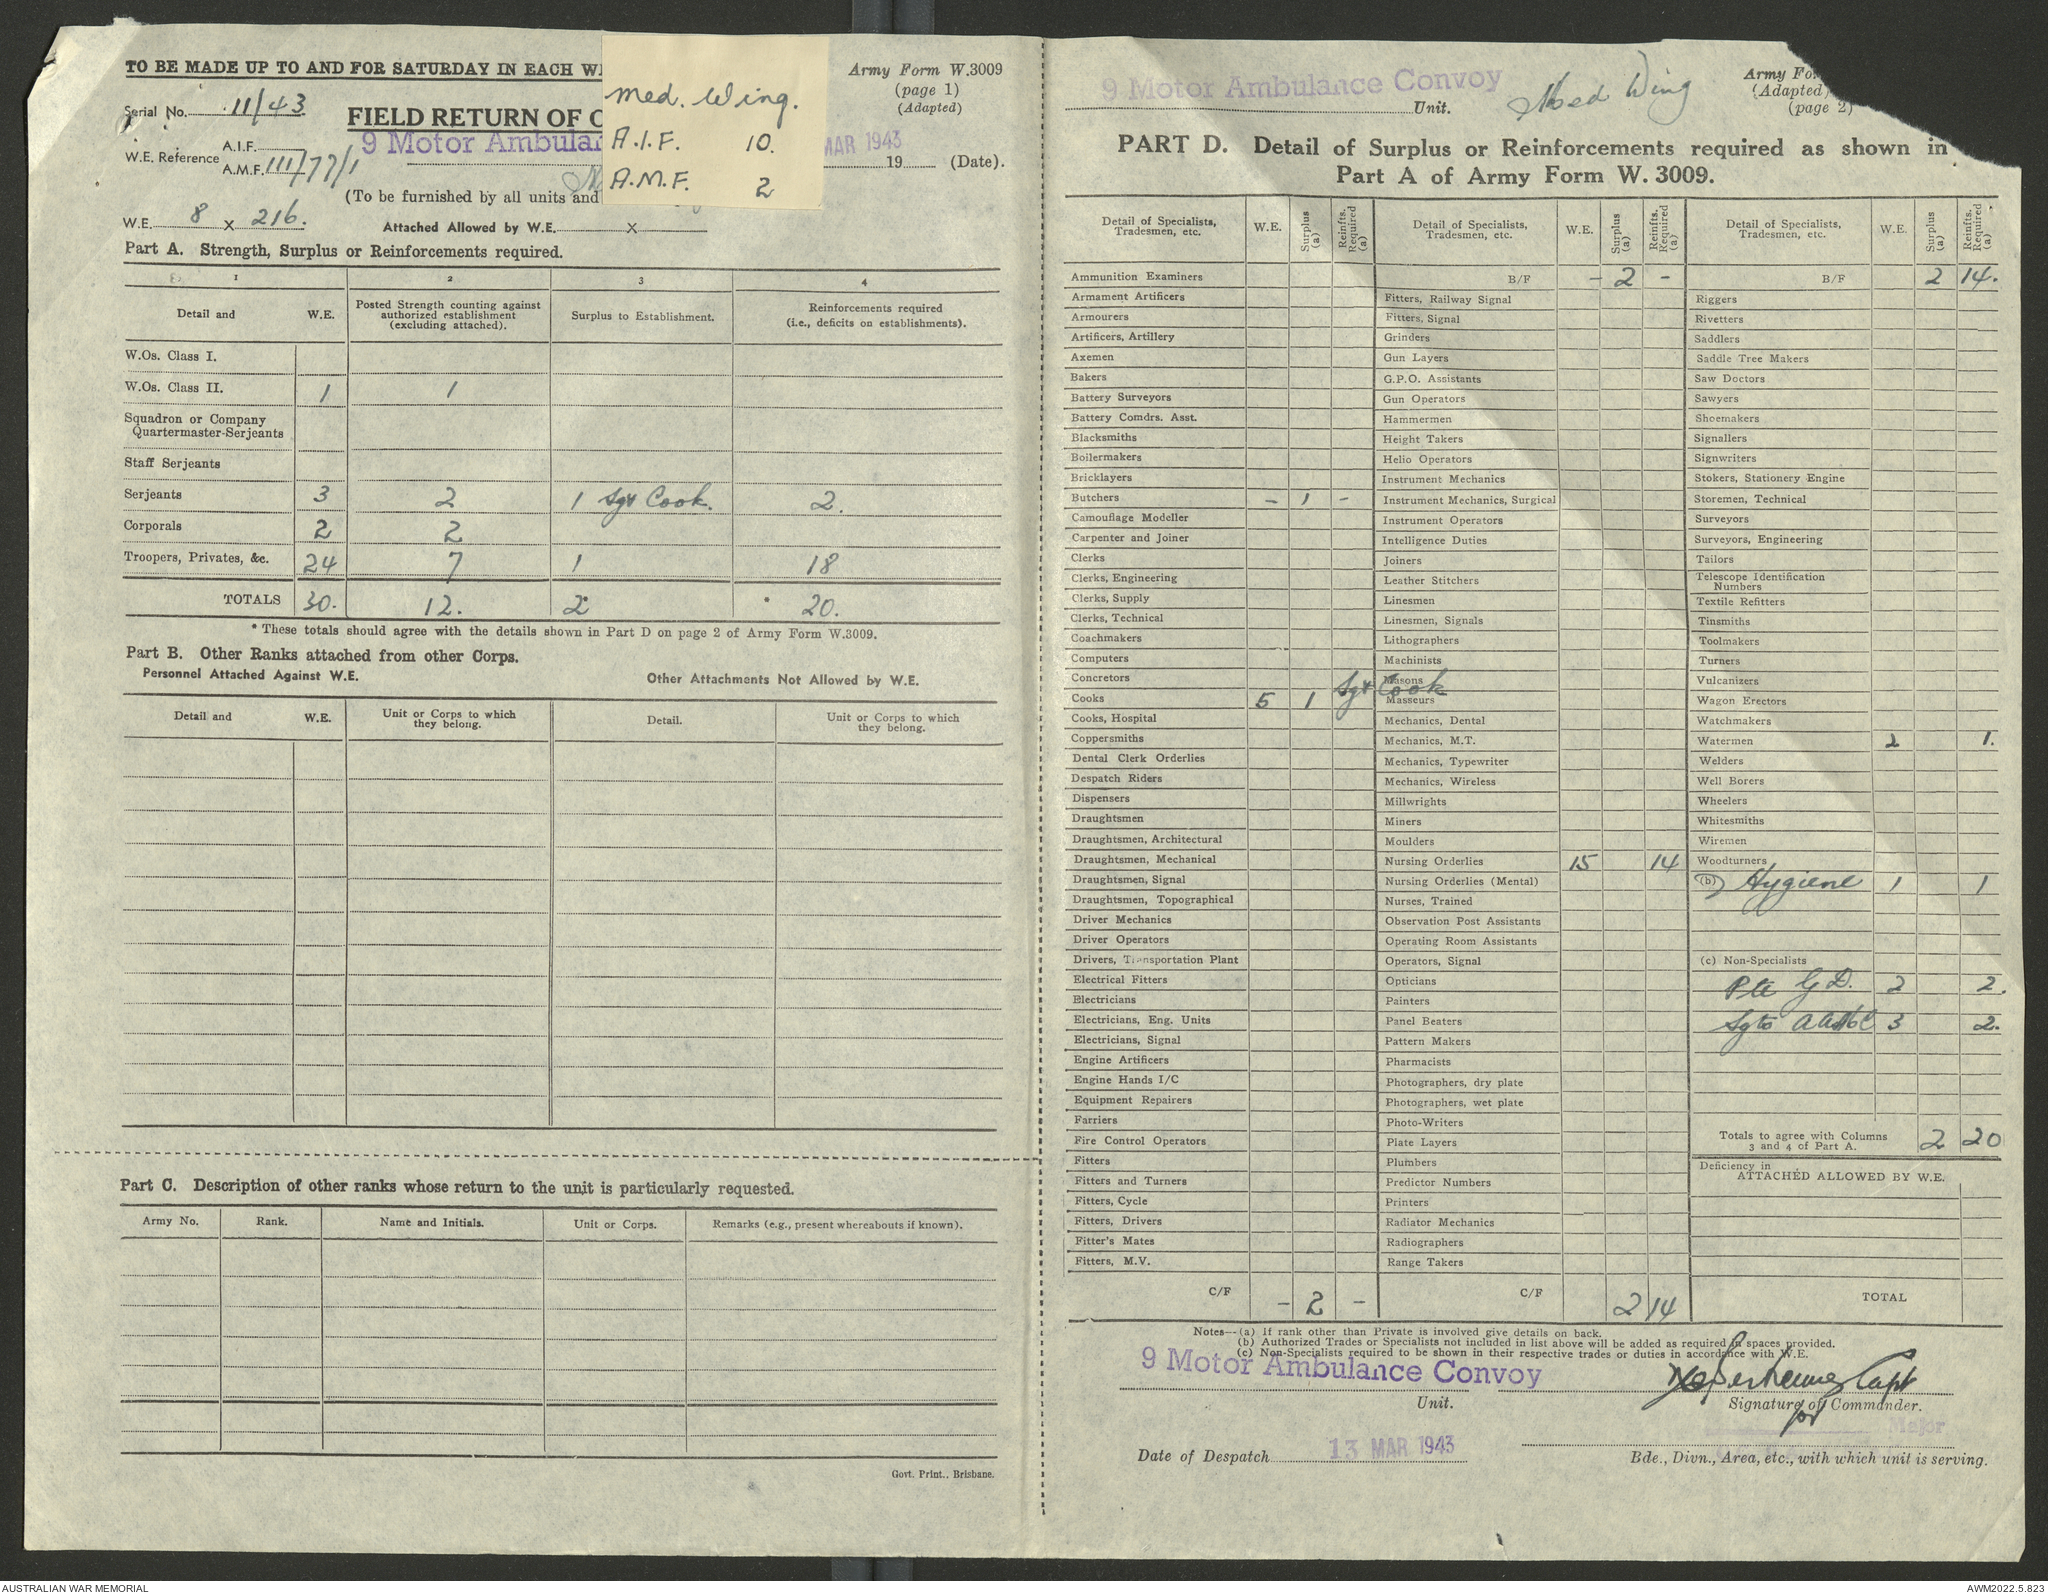 TO BE MADE UP TO AND FOR SATURDAY IN EACH
Army Form W.3009
(page 1)
(Adapted)
Serial No. 11/43
FIELD RETURN OF
9 Motor
MAR 1943
W.E. Reference A.I.F.
A.M.F. 111/77/1
19 (Date).
(To be furnished by all units and
W.E. 8 x 216.
Attached Allowed by W.E. x
Med. Wing.
A.I.F. 10.
A.M.F. 2
Part A. Strength, Surplus or Reinforcements required.
1 2 3 4
Detail and W.E. Posted Strength counting against authorized establishment (excluding attached). Surplus to Establishment. Reinforcements required (i.e., deficits on establishments).
W.Os. Class I.
W.Os. Class II. 1 1
Squadron or Company
Quartermaster-Serjeants
Staff Serjeants
Serjeants 3 2 1 Sgt Cook. 2.
Corporals 2 2
Troopers, Privates, &c. 24 7 1 18
TOTALS 30. 12. 2 * 20.
* These totals should agree with the details shown in Part D on page 2 of Army Form W.3009.
Part B. Other Ranks attached from other Corps.
Personnel Attached Against W.E.
Other Attachments Not Allowed by W.E.
Detail and W.E. Unit or Corps to which they belong. Detail. Unit or Corps to which they belong.
Part C. Description of other ranks whose return to the unit is particularly requested.
Army No. Rank. Name and Initials. Unit or Corps. Remarks (e.g., present whereabouts if known).
Govt. Print., Brisbane.
9 Motor Ambulance Convoy
Unit.
Med Wing
Army
(Adapted)
(page 2)
PART D. Detail of Surplus or Reinforcements required as shown in
Part A of Army Form W. 3009.
Detail of Specialists, Tradesmen, etc. W.E. Surplus (a) Reinfts. Required (a)
Ammunition Examiners
Armament Artificers
Armourers
Artificers, Artillery
Axemen
Bakers
Battery Surveyors
Battery Comdrs. Asst.
Blacksmiths
Boilermakers
Bricklayers
Butchers - 1 -
Camouflage Modeller
Carpenter and Joiner
Clerks
Clerks, Engineering
Clerks, Supply
Clerks, Technical
Coachmakers
Computers
Concretors
Cooks 5 1 Sgt Cook
Cooks, Hospital
Coppersmiths
Dental Clerk Orderlies
Despatch Riders
Dispensers
Draughtsmen
Draughtsmen, Architectural
Draughtsmen, Mechanical
Draughtsmen, Signal
Draughtsmen, Topographical
Driver Mechanics
Driver Operators
Drivers, Transportation Plant
Electrical Fitters
Electricians
Electricians, Eng. Units
Electricians, Signal
Engine Artificers
Engine Hands I/C
Equipment Repairers
Farriers
Fire Control Operators
Fitters
Fitters and Turners
Fitters, Cycle
Fitters, Drivers
Fitter's Mates
Fitters, M.V.
C/F - 2 -
Detail of Specialists, Tradesmen, etc. W.E. Surplus (a) Reinfts. Required (a)
B/F - 2 -
Fitters, Railway Signal
Fitters, Signal
Grinders
Gun Layers
G.P.O. Assistants
Gun Operators
Hammermen
Height Takers
Helio Operators
Instrument Mechanics
Instrument Mechanics, Surgical
Instrument Operators
Intelligence Duties
Joiners
Leather Stitchers
Linesmen
Linesmen, Signals
Lithographers
Machinists
Masons
Masseurs
Mechanics, Dental
Mechanics, M.T.
Mechanics, Typewriter
Mechanics, Wireless
Millwrights
Miners
Moulders
Nursing Orderlies 15 14
Nursing Orderlies (Mental)
Nurses, Trained
Observation Post Assistants
Operating Room Assistants
Operators, Signal
Opticians
Painters
Panel Beaters
Pattern Makers
Pharmacists
Photographers, dry plate
Photographers, wet plate
Photo-Writers
Plate Layers
Plumbers
Predictor Numbers
Printers
Radiator Mechanics
Radiographers
Range Takers
C/F 2 14
Detail of Specialists, Tradesmen, etc. W.E. Surplus (a) Reinfts. Required (a)
B/F 2 14.
Riggers
Rivetters
Saddlers
Saddle Tree Makers
Saw Doctors
Sawyers
Shoemakers
Signallers
Signwriters
Stokers, Stationery Engine
Storemen, Technical
Surveyors
Surveyors, Engineering
Tailors
Telescope Identification
Numbers
Textile Refitters
Tinsmiths
Toolmakers
Turners
Vulcanizers
Wagon Erectors
Watchmakers
Watermen 2 1.
Welders
Well Borers
Wheelers
Whitesmiths
Wiremen
Woodturners
(b) Hygiene 1 1
(c) Non-Specialists
Pte G.D. 2 2.
Sgts 3 2.
Totals to agree with Columns
3 and 4 of Part A. 2 20
Deficiency in
ATTACHED ALLOWED BY W.E.
TOTAL
Notes—(a) If rank other than Private is involved give details on back.
(b) Authorized Trades or Specialists not included in list above will be added as required in spaces provided.
(c) Non-Specialists required to be shown in their respective trades or duties in accordance with W.E.
9 Motor Ambulance Convoy
Unit.
Capt
Signature of Commander.
for
Major
Date of Despatch 13 MAR 1943
Bde., Divn., Area, etc., with which unit is serving.
AUSTRALIAN WAR MEMORIAL
AWM2022.5.823